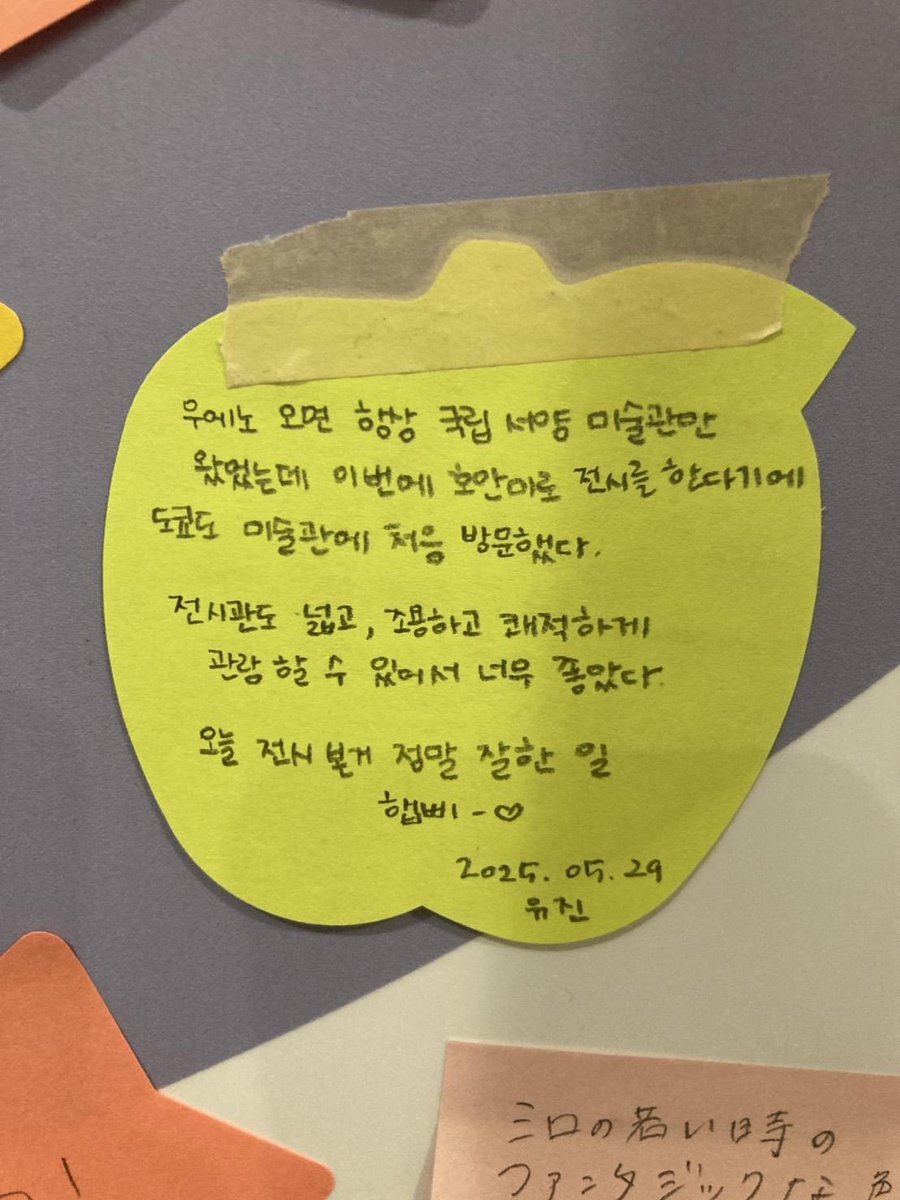 우에노 오면 항상 국립 서양 미술관만
왔었는데 이번에 호안미로 전시를 한다기에
도쿄도 미술관에 처음 방문했다.
전시관도 넓고, 조용하고 쾌적하게
관람 할 수 있어서 너무 좋았다.
오늘 전시 본거 정말 잘한 일
햅삐 - ♡
2025. 05. 29
유진
ミロの若い時の
ファンタジックな色